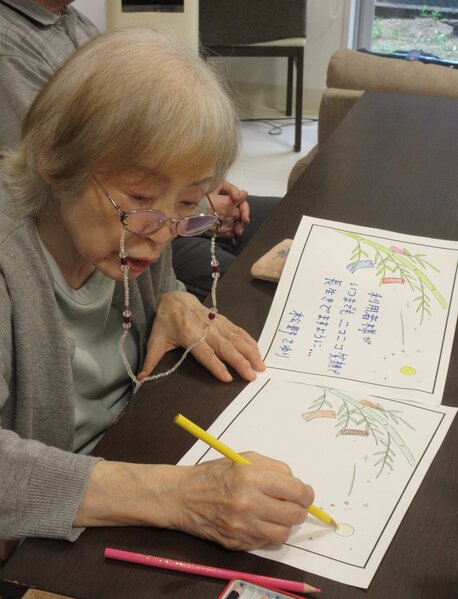 利用者様が
いつまでも ニコニコ笑顔で
長生きできますように…
松野 さゆり